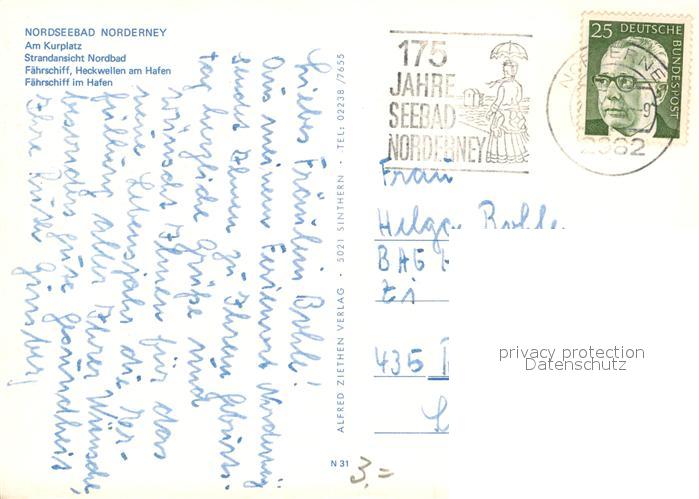 NORDSEEBAD NORDERNEY
Am Kurplatz
Strandansicht Nordbad
Fährschiff, Heckwellen am Hafen
Fährschiff im Hafen
175
JAHRE
SEEBAD
NORDERNEY
25 DEUTSCHE
BUNDESPOST
2982
Liebes Fräulein Bohle!
Aus meinem Ferienort Norderney
sende ich Ihnen zu Ihrem Geburts-
tag herzliche Grüße und
wünsche Ihnen für das
neue Lebensjahr die Er-
füllung aller Ihrer Wünsche,
besonders gute Gesundheit
Ihre
ALFRED ZIETHEN VERLAG · 5021 SINTHERN · TEL: 02238 /7655
Frau
Helga Bohle
435
N 31
3,=
privacy protection
Datenschutz